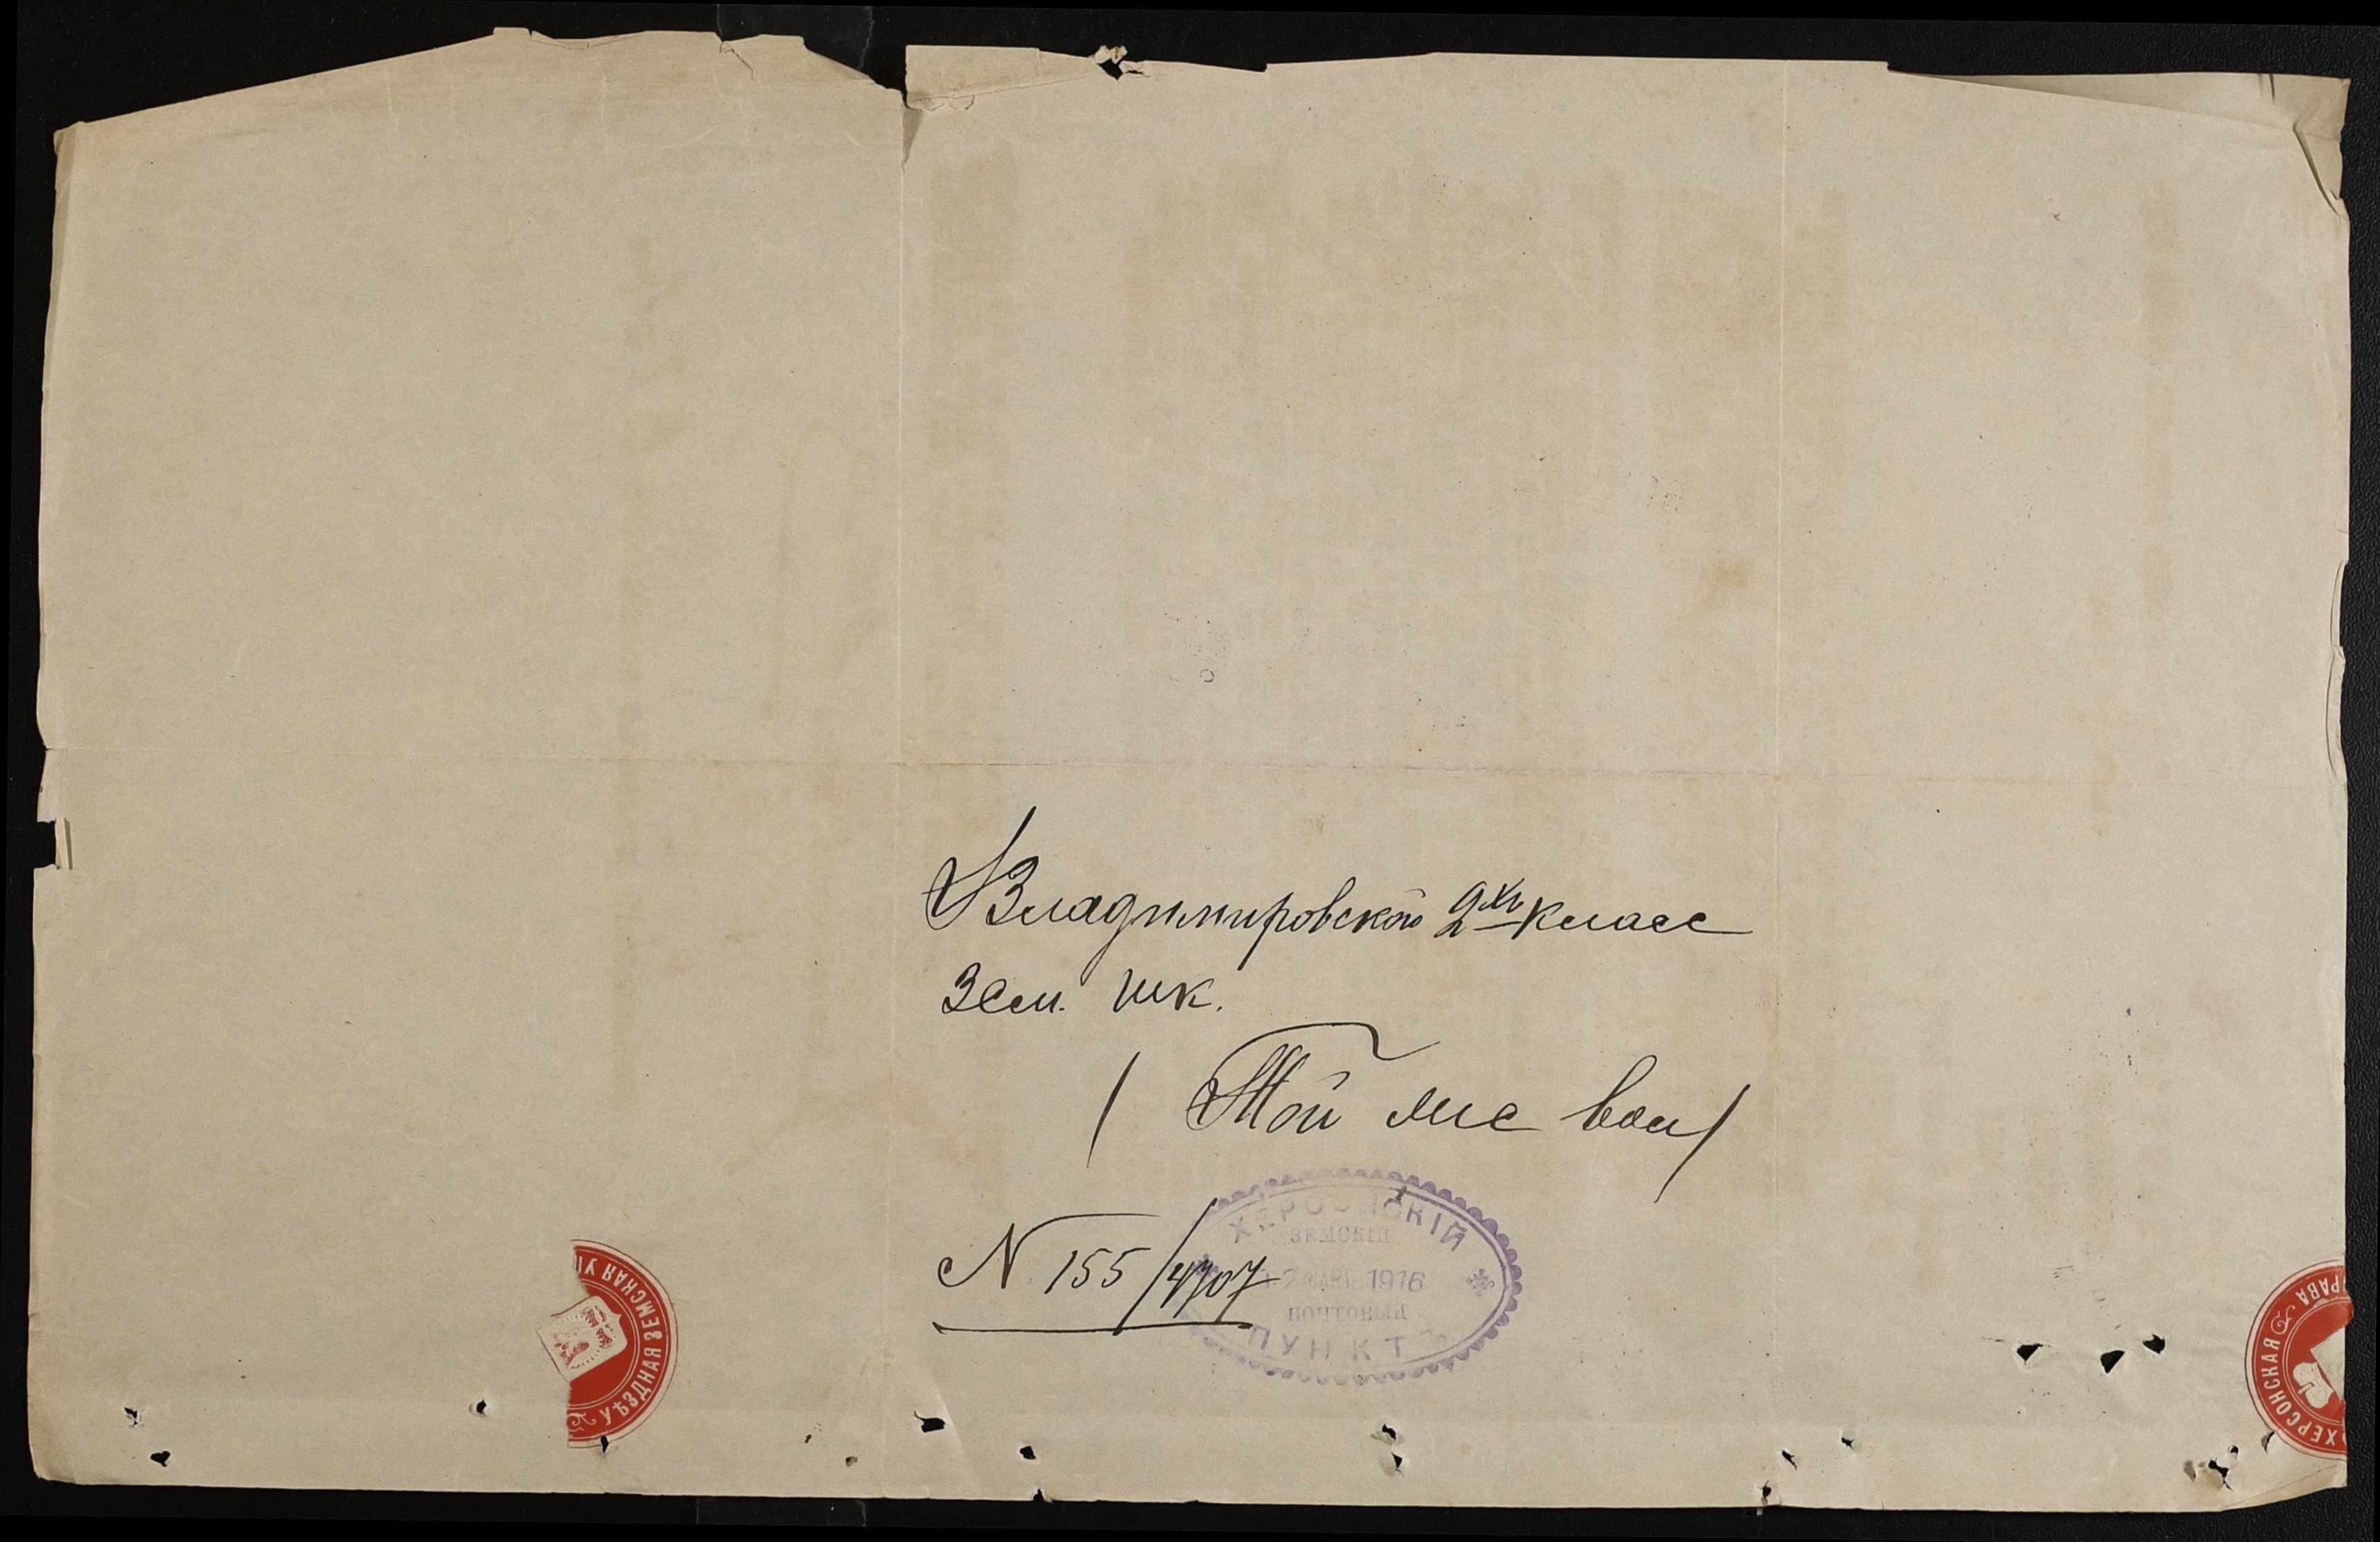 Владимировской 2хъ класс
Зем. шк.
(Той же вол)
N 155/4707
ХЕРСОНСКІЙ
ЗЕМСКІЙ
2 МАР. 1916
ПОЧТОВЫЙ
ПУНКТ
УѢЗДНАЯ ЗЕМСКАЯ УП
ХЕРСОНСКАЯ
РАВА